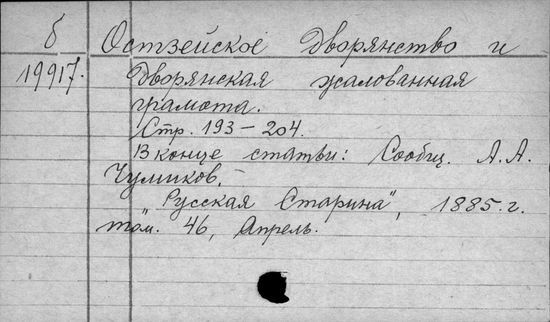 б Остзейское Дворянство и
19917. Дворянская жалованная
грамота.
Стр. 193–204.
В конце статьи: Сообщ. А. А.
Чумиков.
„Русская Старина", 1885. г.
том. 46, Апрель.